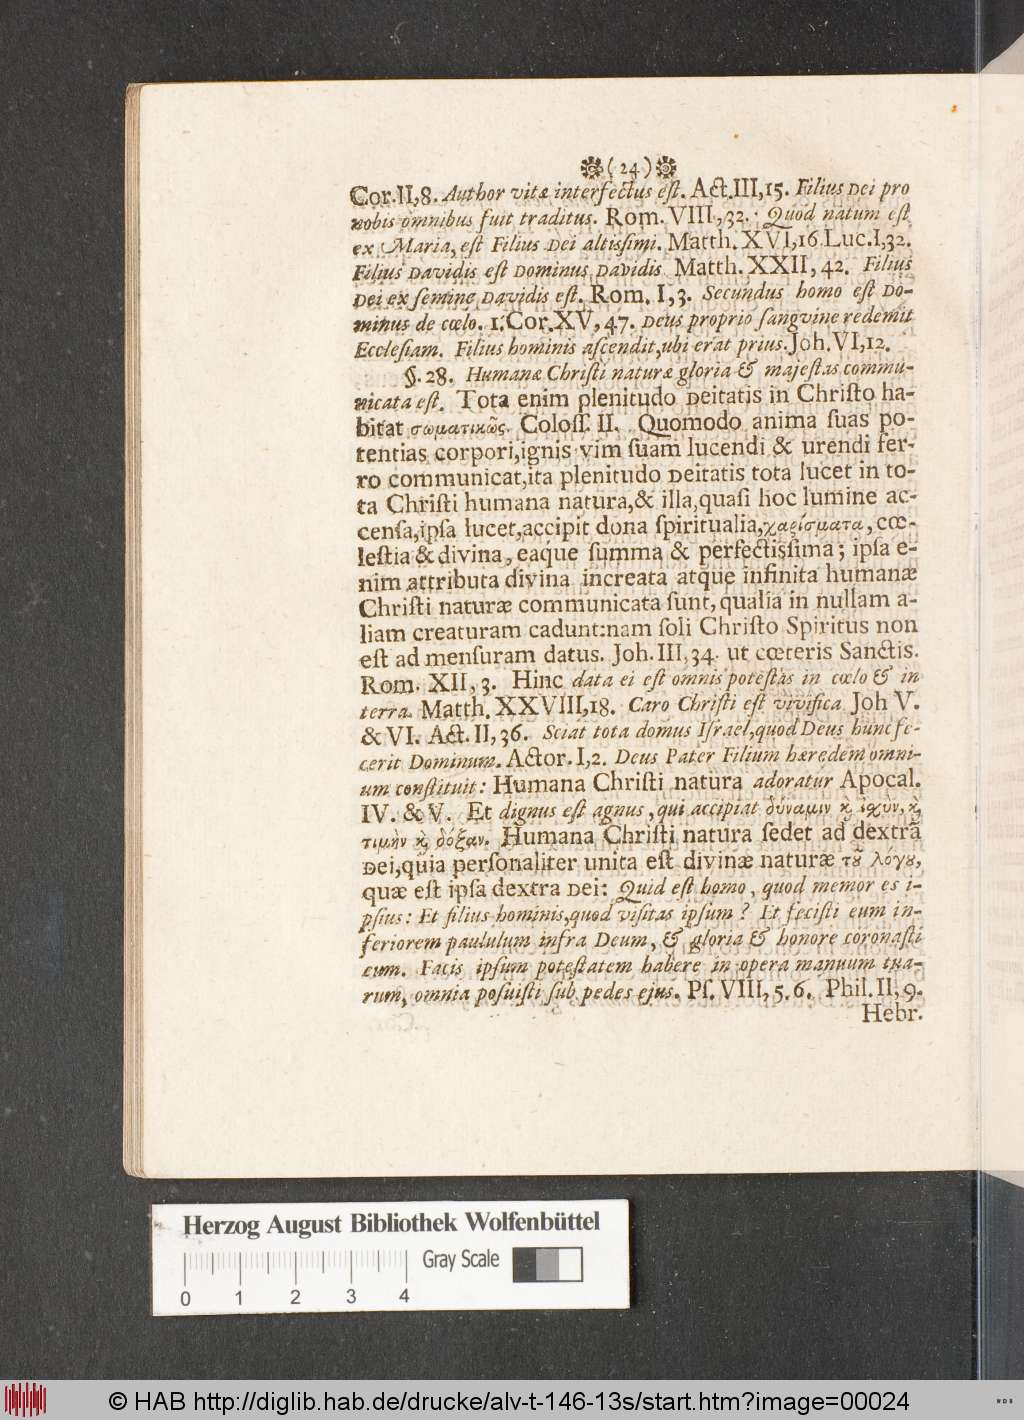 (24)
Cor.II,8. Author vitæ interfectus eſt. Act.III,15. Filius Dei pro
nobis omnibus fuit traditus. Rom. VIII, 32. Quod natum eſt
ex Maria, eſt Filius Dei altiſſimi. Matth. XVI,16 Luc.I,32.
Filius Davidis eſt Dominus Davidis Matth. XXII, 42. Filius
Dei ex ſemine Davidis eſt. Rom. I, 3. Secundus homo eſt Do-
minus de cœlo. 1. Cor. XV, 47. Deus proprio ſangvine redemit
Eccleſiam. Filius hominis aſcendit,ubi erat prius. Joh. VI,12.
§. 28. Humanæ Chriſti naturæ gloria & majeſtas commu-
nicata eſt. Tota enim plenitudo Deitatis in Chriſto ha-
bitat σωματικῶς. Coloſſ. II. Quomodo anima ſuas po-
tentias corpori,ignis vim ſuam lucendi & urendi fer-
ro communicat,ita plenitudo Deitatis tota lucet in to-
ta Chriſti humana natura,& illa,quaſi hoc lumine ac-
cenſa,ipſa lucet,accipit dona ſpiritualia,χαρίσματα, cœ-
leſtia & divina, eaque ſumma & perfectiſſima; ipſa e-
nim attributa divina increata atque infinita humanæ
Chriſti naturæ communicata ſunt, qualia in nullam a-
liam creaturam cadunt:nam ſoli Chriſto Spiritus non
eſt ad menſuram datus. Joh. III, 34. ut cœteris Sanctis.
Rom. XII, 3. Hinc data ei eſt omnis poteſtas in cœlo & in
terra. Matth. XXVIII,18. Caro Chriſti eſt vivifica Joh V.
& VI. Act. II, 36. Sciat tota domus Iſrael,quod Deus hunc fe-
cerit Dominum. Actor. I,2. Deus Pater Filium hæredem omni-
um conſtituit: Humana Chriſti natura adoratur Apocal.
IV. & V. Et dignus eſt agnus, qui accipiat δύναμιν ϗ ἰχὺν, ϗ
τιμὴν ϗ δόξαν. Humana Chriſti natura ſedet ad dextrã
Dei,quia perſonaliter unita eſt divinæ naturæ τȣ͂ λόγȣ,
quæ eſt ipſa dextra Dei: Quid eſt homo, quod memor es i-
pſius: Et filius hominis,quod viſitas ipſum? Et feciſti eum in-
feriorem paululum infra Deum, & gloria & honore coronaſti
eum. Facis ipſum poteſtatem habere in opera manuum tua-
rum, omnia poſuiſti ſub pedes ejus. Pſ. VIII, 5. 6. Phil. II, 9.
Hebr.
Herzog August Bibliothek Wolfenbüttel
Gray Scale
0 1 2 3 4
© HAB http://diglib.hab.de/drucke/alv-t-146-13s/start.htm?image=00024